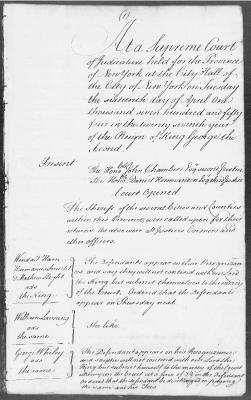 (1)
At a Supreme Court
of Judicature held for the Province
of New York at the City Hall of
the City of New York on Tuesday
the sixteenth day of April One
thousand seven hundred and fifty
four in the twenty seventh year
of the Reign of King George the
Second.
Present
The Honble John Chambers Esqr second Justice
The Honble Daniel Horsmanden Esqr third Justice
Court opened
The Sheriffs of the several Cities and Counties
within this Province were called upon for their
returns As also were all Justices Coroners and
other officers.
Wendell Ham
ads
the King
The Defendants appear on their Recognizance
and say they will not contend with our Lord
the King but submit themselves to the mercy
of the Court Ordered that the Defendants
appear on Thursday next
William
ads
the same
The like
George
ads
the same
The Defendant appears on his Recognizance
and says he will not contend with our Lord the
King but submits himself to the mercy of the Court